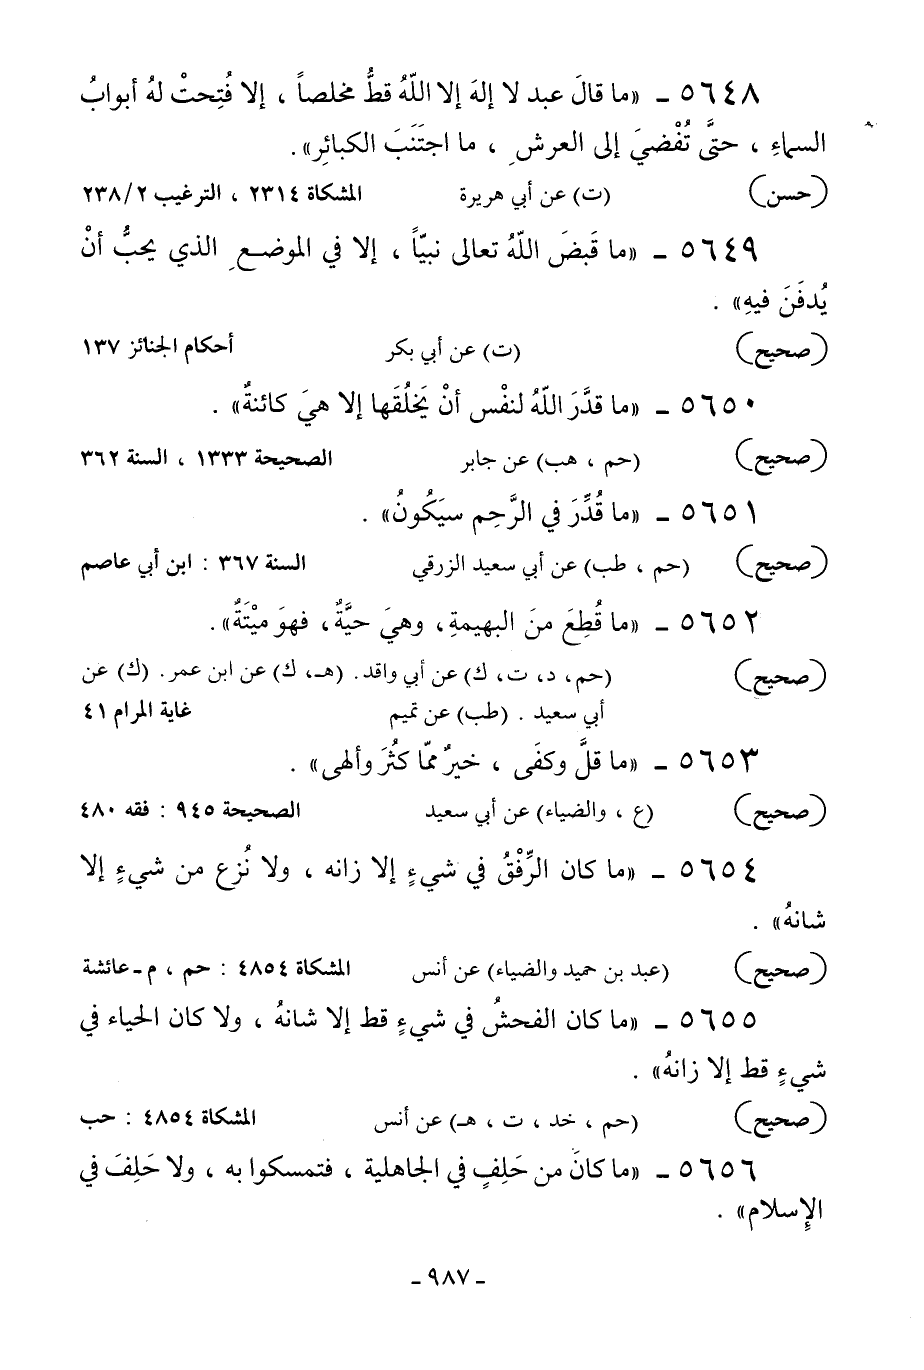 ٥٦٤٨ ـ «ما قالَ عبد لا إلهَ إلا اللّهُ قطُّ مخلصاً ، إلا فُتِحتْ لهُ أبوابُ
السماءِ ، حتَّى تُفْضيَ إلى العرشِ ، ما اجتَنَبَ الكبائِر» .
(حسن) (ت) عن أبي هريرة المشكاة ٢٣١٤ ، الترغيب ٢٣٨/٢
٥٦٤٩ ـ «ما قَبضَ اللّهُ تعالى نبيّاً ، إلا في الموضعِ الذي يحبُّ أنْ
يُدفَنَ فيهِ» .
(صحيح) (ت) عن أبي بكر أحكام الجنائز ١٣٧
٥٦٥٠ ـ «ما قدَّرَ اللّهُ لنفْس أنْ يَخلُقَها إلا هيَ كائنةٌ» .
(صحيح) (حم ، هب) عن جابر الصحيحة ١٣٣٣ ، السنة ٣٦٢
٥٦٥١ ـ «ما قُدِّرَ في الرَّحِم سيَكُونُ» .
(صحيح) (حم ، طب) عن أبي سعيد الزرقي السنة ٣٦٧ : ابن أبي عاصم
٥٦٥٢ ـ «ما قُطِعَ منَ البهيمةِ، وهيَ حيَّةٌ، فهوَ ميْتَةٌ» .
(صحيح) (حم، د، ت، ك) عن أبي واقد. (هـ، ك) عن ابن عمر. (ك) عن
أبي سعيد . (طب) عن تميم غاية المرام ٤١
٥٦٥٣ ـ «ما قلَّ وكفَى ، خيرٌ ممّا كثُرَ وألهى» .
(صحيح) (ع ، والضياء) عن أبي سعيد الصحيحة ٩٤٥ : فقه ٤٨٠
٥٦٥٤ ـ «ما كان الرِّفْقُ في شيءٍ إلا زانه ، ولا نُزع من شيءٍ إلا
شانهُ» .
(صحيح) (عبد بن حميد والضياء) عن أنس المشكاة ٤٨٥٤ : حم ، م ـ عائشة
٥٦٥٥ ـ «ما كان الفحشُ في شيءٍ قط إلا شانهُ ، ولا كان الحياء في
شيءٍ قط إلا زانهُ» .
(صحيح) (حم ، خد ، ت ، هـ) عن أنس المشكاة ٤٨٥٤ : حب
٥٦٥٦ ـ «ما كانَ من حَلِفٍ في الجاهلية ، فتمسكوا به ، ولا حَلِفَ في
الإسلام» .
ـ ٩٨٧ ـ